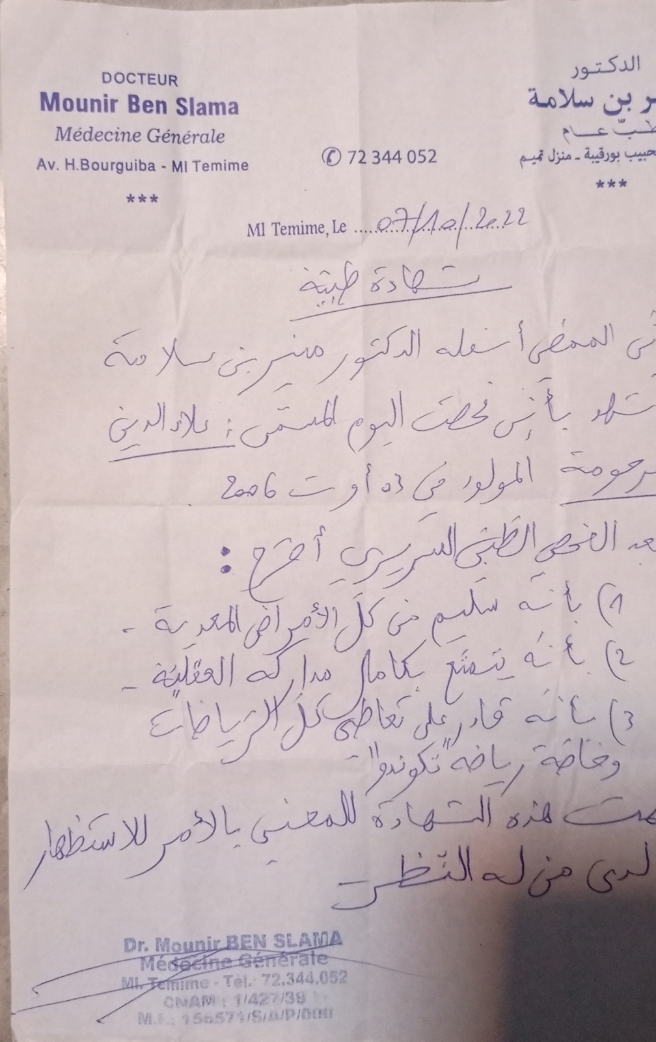 DOCTEUR
Mounir Ben Slama
Médecine Générale
Av. H.Bourguiba - Ml Temime
***
✆ 72 344 052
الدكتور
ر بن سلامة
طب عام
حبيب بورقيبة - منزل تميم
***
Ml Temime, Le ....07/10/2022
شهادة طبية
الممضي أسفله الدكتور منير بن سلامة
بأنني فحصت اليوم المسمى : علاء الدين
المولود في 03 أوت 2006
الفحص الطبي السريري أصرح :
1) بأنه سليم من كل الأمراض المعدية -
2) بأنه يتمتع بكامل مداركه العقلية -
3) بأنه قادر على تعاطي كل الرياضات
وخاصة رياضة "تكوندوا"
هذه الشهادة للمعني بالأمر للاستظهار
لدى من له النظر
Dr. Mounir BEN SLAMA
Médecine Générale
Ml. Temime - Tél.: 72.344.052
CNAM : 1/427/39